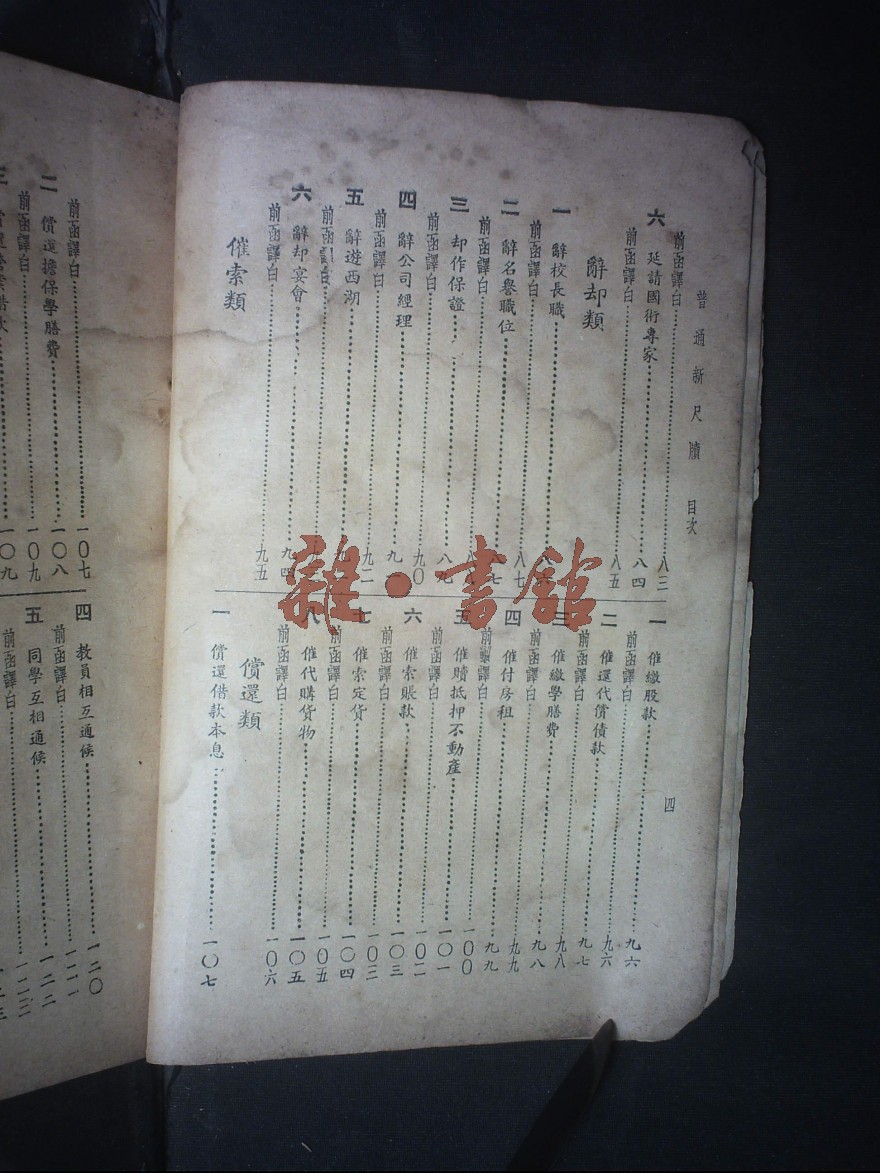 普通新尺牘 目次
四
前函譯白……八三
六 延請國術專家……八四
前函譯白……八五
辭却類
一 辭校長職
前函譯白……八七
二 辭名譽職位……八七
前函譯白
三 却作保證……八九
前函譯白……九〇
四 辭公司經理
前函譯白……九二
五 辭遊西湖
前函譯白
六 辭却宴會……九四
前函譯白……九五
催索類
一 催繳股款……九六
前函譯白……九六
二 催還代償債款……九六
前函譯白……九七
三 催繳學膳費……九八
前函譯白……九八
四 催付房租……九九
前函譯白……九九
五 催贖抵押不動產……一〇一
前函譯白……一〇二
六 催索賬款……一〇三
前函譯白……一〇三
七 催索定貨……一〇四
前函譯白……一〇五
八 催代購貨物……一〇五
前函譯白……一〇六
償還類
一 償還借款本息……一〇七
前函譯白……一〇七
二 償還擔保學膳費……一〇八
前函譯白……一〇九
三
四 教員相互通候……一二〇
前函譯白
五 同學互相通候……一二二
前函譯白
雜·書館